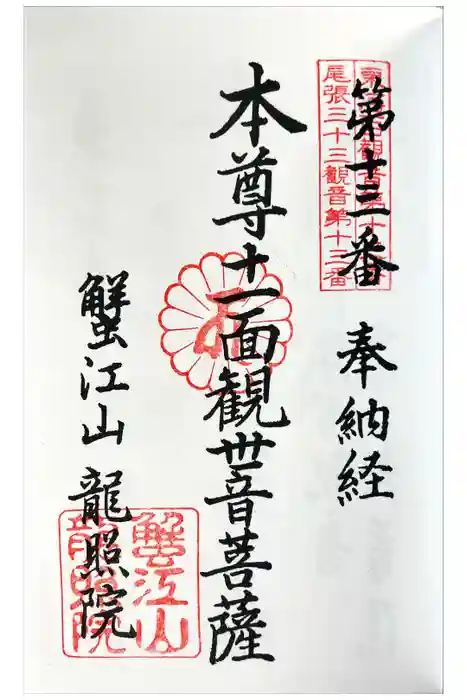 第十三番
奉納経
尾張三十三觀音第十三番
本尊十一面観世音菩薩
蟹江山 龍照院
蟹江山
龍照院